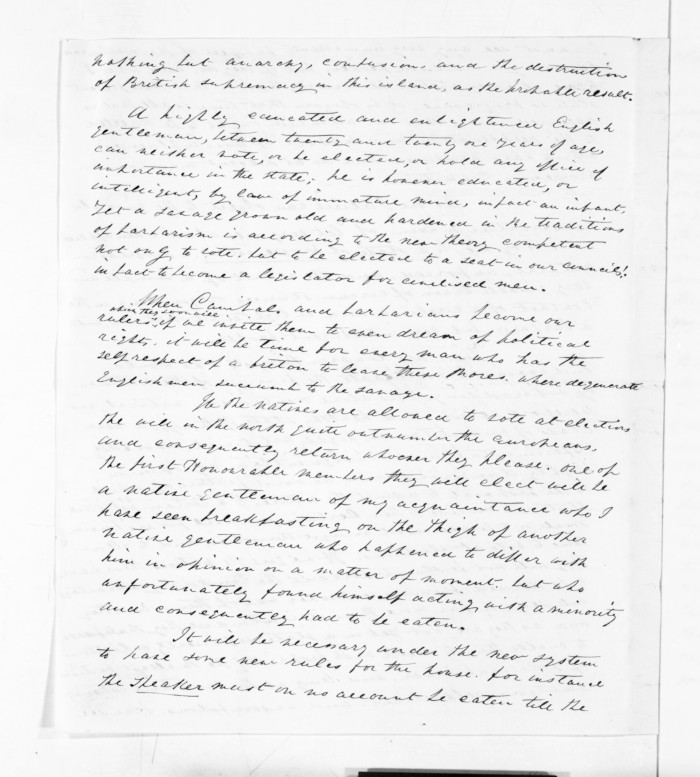 nothing but anarchy, confusion and the destruction
of British supremacy in this island, as the probable result.
A highly educated and enlightened English
gentleman, between twenty and twenty one years of age,
can neither vote, or be elected, or hold any office of
importance in the state; he is however educated, or
intelligent, by law of immature mind, in fact an infant,
Yet a savage grown old and hardened in the traditions
of barbarism is according to the new theory competent
not only to vote, but to be elected to a seat in our council!,
in fact to become a legislator for civilised men.
When Canibals and barbarians become our
when they soon will
rulers, if we invite them to even dream of political
rights. it will be time for every man who has the
self respect of a briton to leave these shores. where degenerate
Englishmen succumb to the savage.
If the natives are allowed to vote at elections
the will in the north quite outnumber the Europeans,
and consequently return whoever they please. one of
the first Honourable members they will elect will be
a native gentleman of my acquaintance who I
have seen breakfasting on the thigh of another
native gentleman who happened to differ with
him in opinion on a matter of moment. but who
unfortunately found himself acting with a minority
and consequently had to be eaten.
It will be necessary under the new system
to have some new rules for the house. for instance
the Speaker must on no account be eaten till the